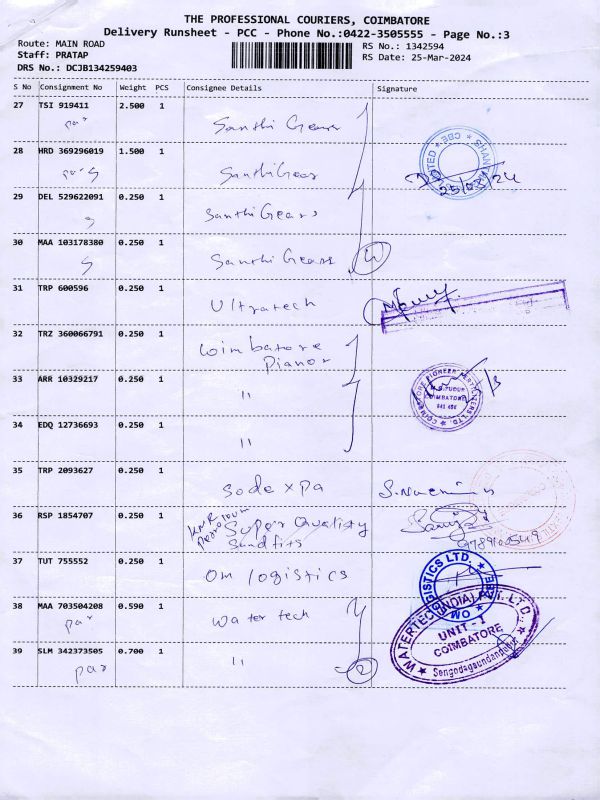 THE PROFESSIONAL COURIERS, COIMBATORE
Delivery Runsheet - PCC - Phone No.:0422-3505555 - Page No.:3
Route: MAIN ROAD
Staff: PRATAP
DRS No.: DCJB134259403
RS No.: 1342594
RS Date: 25-Mar-2024
S No Consignment No Weight PCS Consignee Details Signature
27 TSI 919411 2.500 1
par Santhi Gears
28 HRD 369296019 1.500 1
Santhi Gears
25/03/24
29 DEL 529622091 0.250 1
S Santhi Gears
30 MAA 103178380 0.250 1
S Santhi Gears 4
31 TRP 600596 0.250 1
Ultratech
32 TRZ 360066791 0.250 1
Coimbatore
Pianor
33 ARR 10329217 0.250 1
"
COIMBATORE
34 EDQ 12736693 0.250 1
"
35 TRP 2093627 0.250 1
sodexpa
36 RSP 1854707 0.250 1
Super Quality
Sundfits
37 TUT 755552 0.250 1
Om logistics
OM LOGISTICS LTD.
38 MAA 703504208 0.590 1
par Water tech
39 SLM 342373505 0.700 1
par " 2
WATERTEC (INDIA) PVT. LTD.
UNIT - I
COIMBATORE